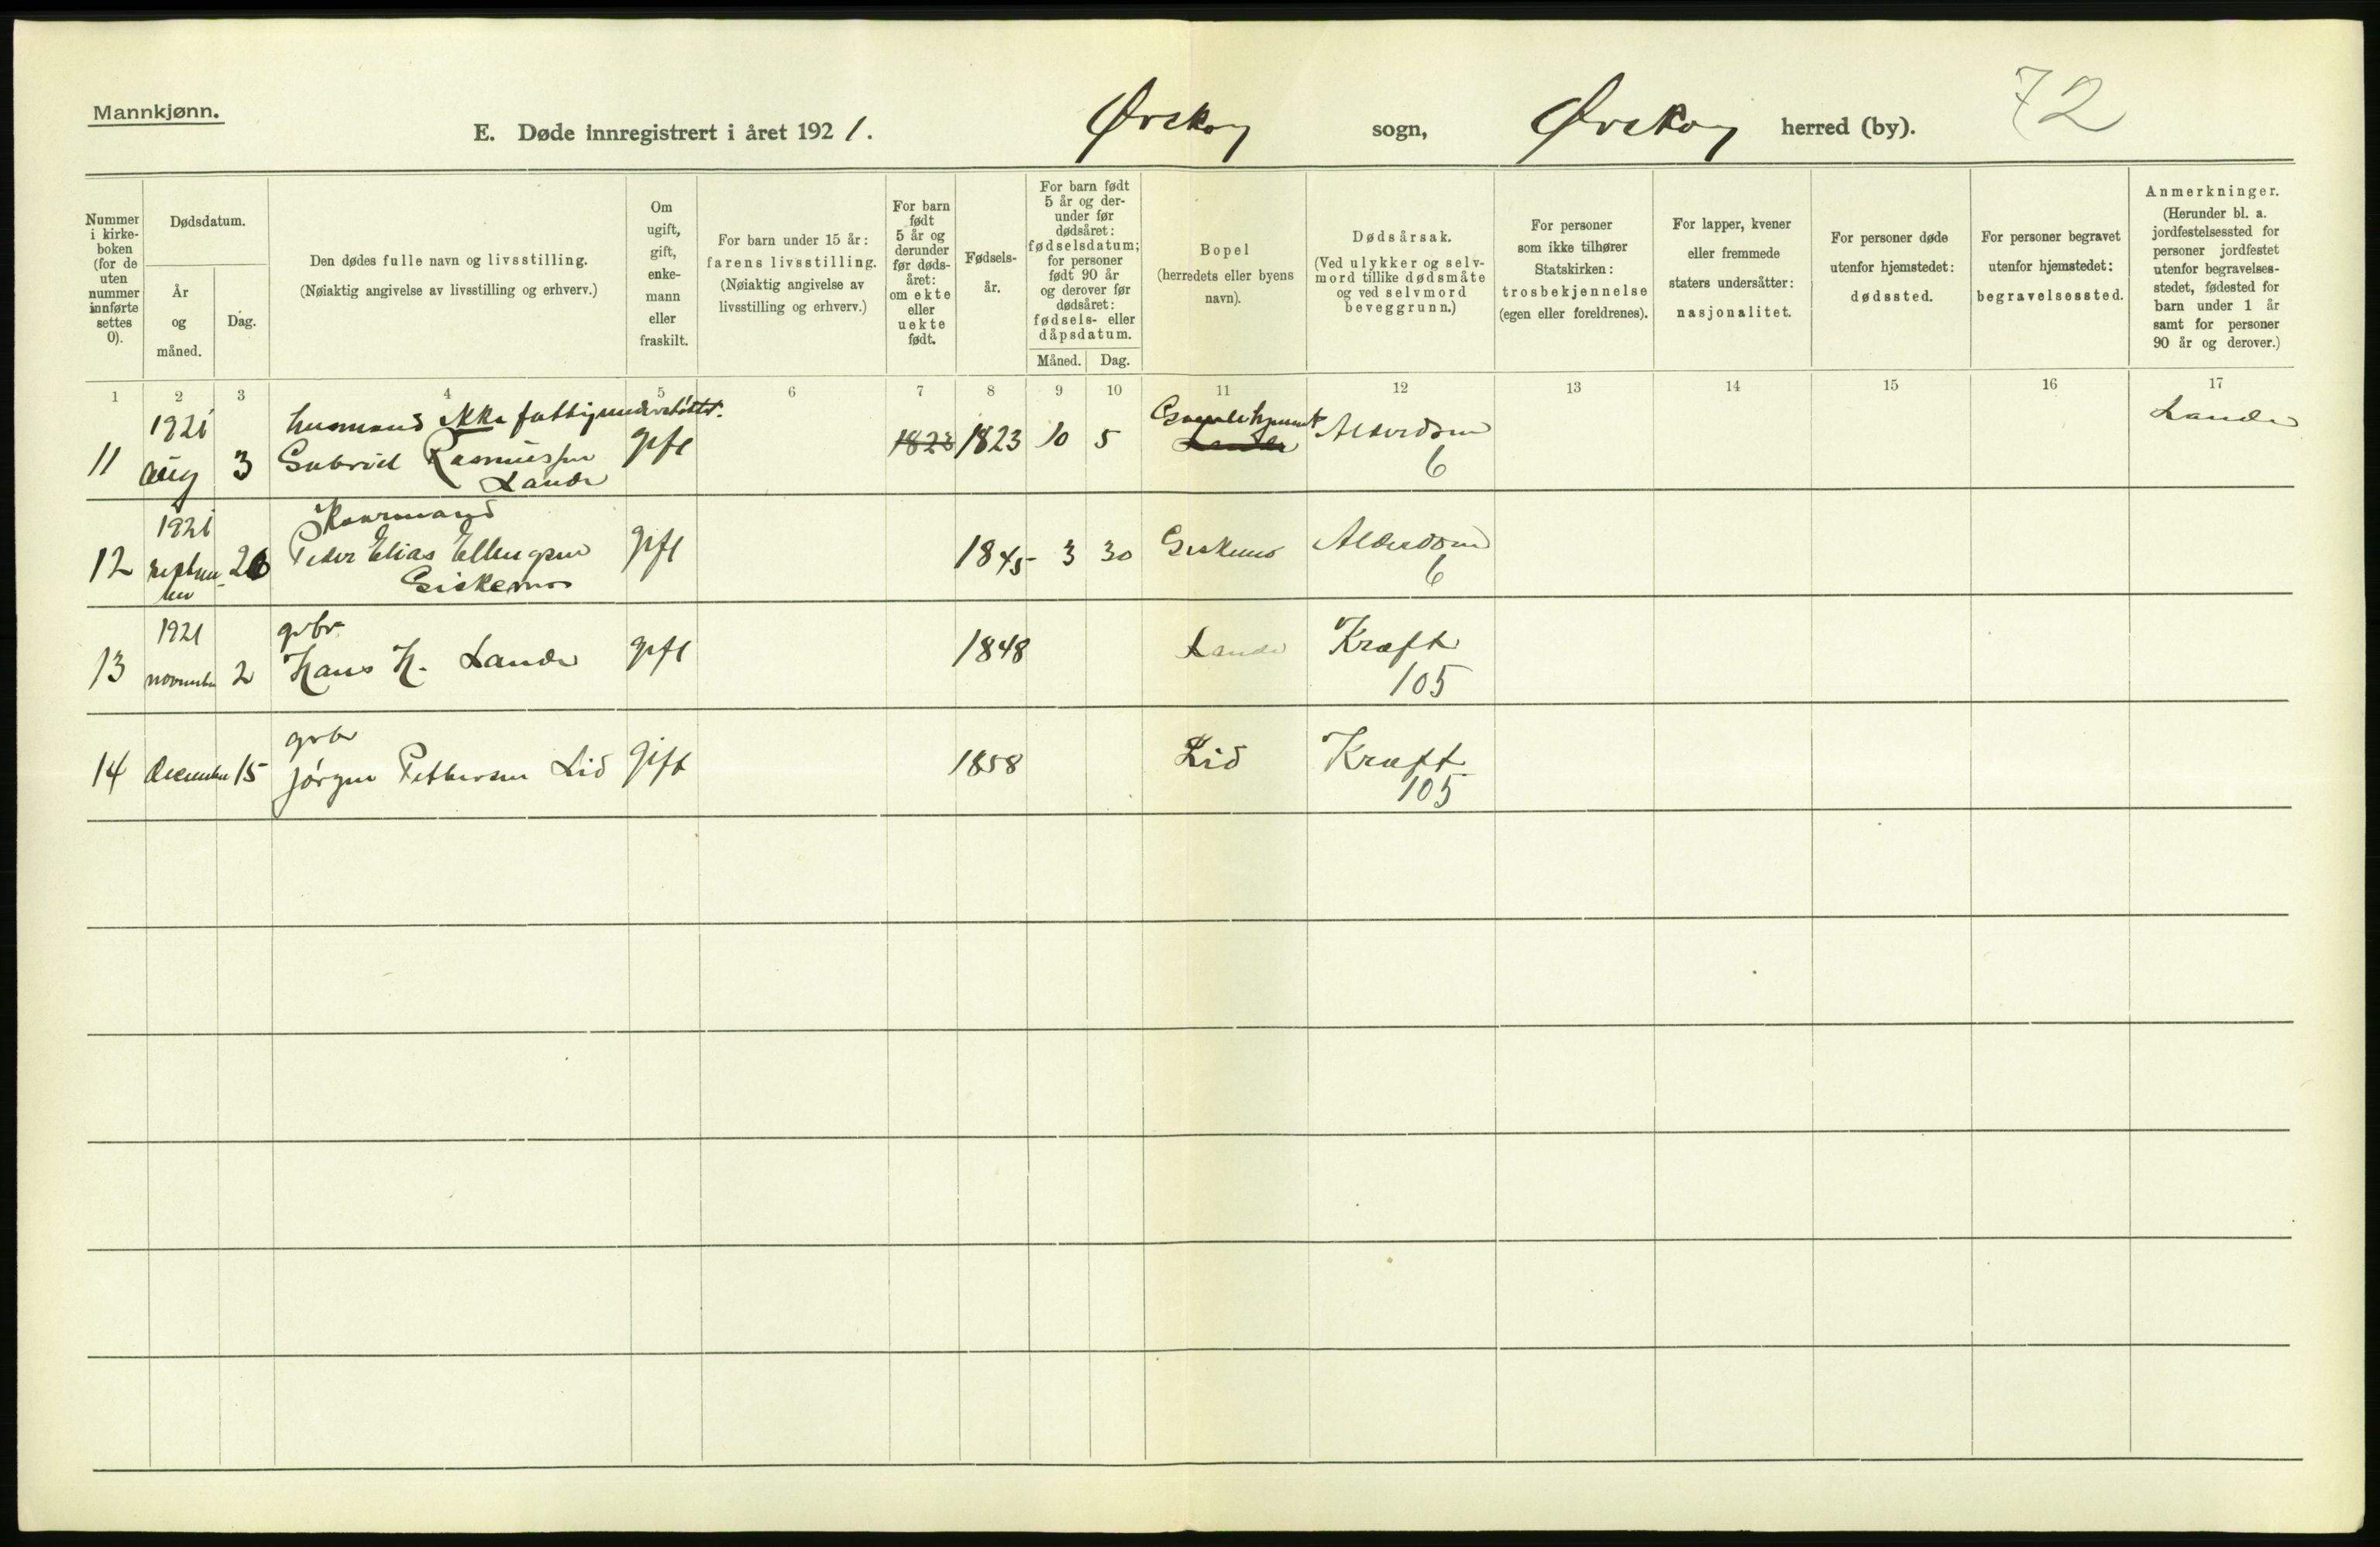 Mannkjønn.
E. Døde innregistrert i året 1921. Ørskog sogn, Ørskog herred (by). 72
Nummer i kirke-boken (for de uten nummer innførte settes 0).
Dødsdatum.
År og måned.
Dag.
Den dødes fulle navn og livsstilling.
(Nøiaktig angivelse av livsstilling og erhverv.)
Om ugift, gift, enke-mann eller fraskilt.
For barn under 15 år: farens livsstilling.
(Nøiaktig angivelse av livsstilling og erhverv.)
For barn født 5 år og derunder før døds-året: om ekte eller uekte født.
Fødsels-år.
For barn født 5 år og der-under før dødsåret: fødselsdatum; for personer født 90 år og derover før dødsåret: fødsels- eller dåpsdatum.
Måned. Dag.
Bopel (herredets eller byens navn).
Dødsårsak.
(Ved ulykker og selv-mord tillike dødsmåte og ved selvmord beveggrunn.)
For personer som ikke tilhører Statskirken: trosbekjennelse (egen eller foreldrenes).
For lapper, kvener eller fremmede staters undersåtter: nasjonalitet.
For personer døde utenfor hjemstedet: dødssted.
For personer begravet utenfor hjemstedet: begravelsessted.
Anmerkninger.
(Herunder bl. a. jordfestelsessted for personer jordfestet utenfor begravelses-stedet, fødested for barn under 1 år samt for personer 90 år og derover.)
1 2 3 4 5 6 7 8 9 10 11 12 13 14 15 16 17
1921 husmand ikke fattigunderstøttet. Gamlehjemmet Lande
11 aug 3 Gabriel Rasmussen gift 1823 1823 10 5 Lande Alderdom
Lande 6
1921 Kaarmand
12 septem 26 Peder Elias Ellingsen gift 1845 3 30 Giskemo Alderdom
ber Giskemo 6
1921 gvbr
13 november 2 Hans H. Lande gift 1848 Lande Kræft
105
gvbr
14 december 15 Jørgen Pettersen Lid gift 1858 Lid Kræft
105